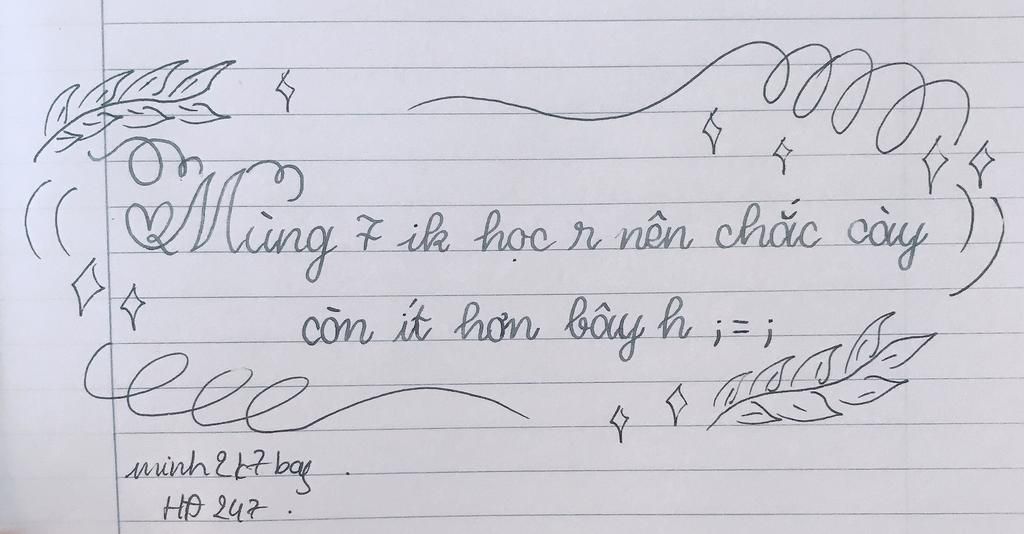 (( Mùng 7 ik học r nên chắc cày ))
còn ít hơn bây h ;=;
minh2k7bag.
HĐ 247.